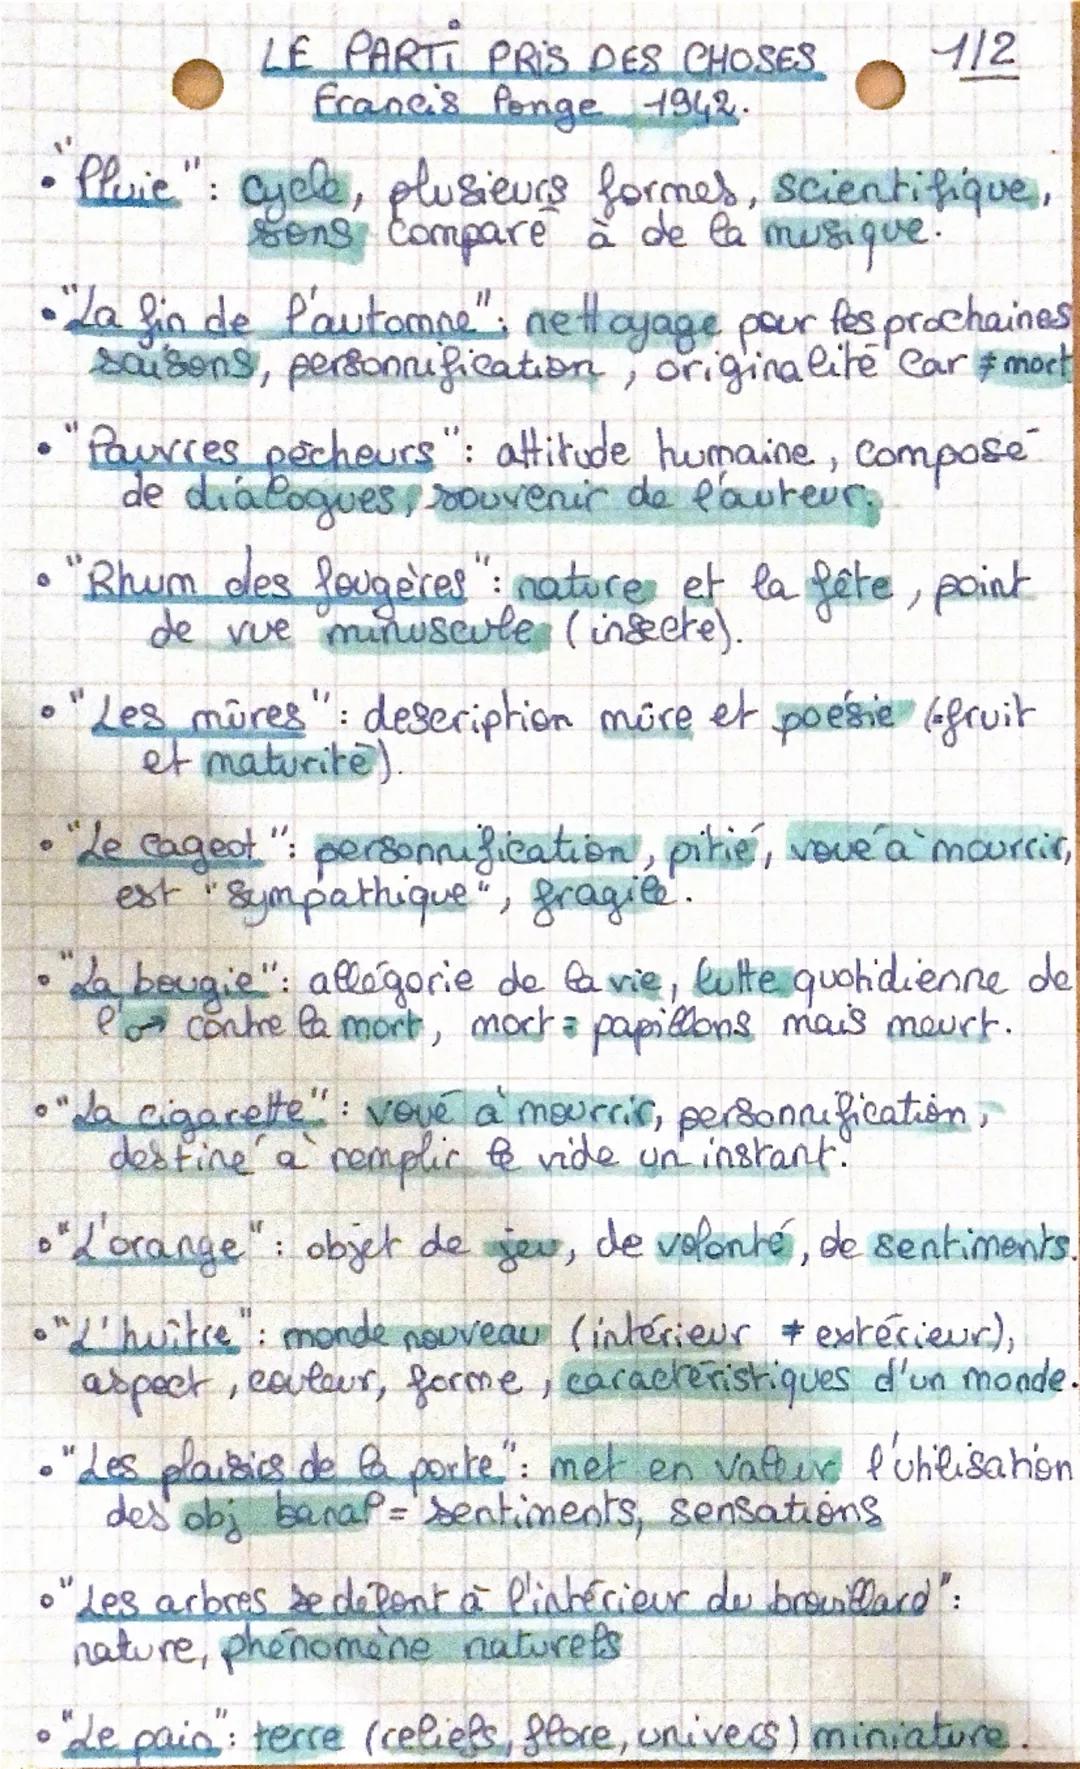 LE PARTI PRIS DES CHOSES 1/2
Francis Ponge 1942.
• "Pluie": cycle, plusieurs formes, scientifique,
sons comparé à de la musique.
• "La fin de l'automne": nettoyage pour les prochaines
saisons, personnification, originalité car ≠ mort
• "Pauvres pêcheurs": attitude humaine, composé
de dialogues, souvenir de l'auteur.
• "Rhum des fougères": nature et la fête, point
de vue minuscule (insecte).
• "Les mûres": description mûre et poésie (=fruit
et maturité).
• "Le cageot": personnification, pitié, voué à mourrir,
est "sympathique", fragile.
• "La bougie": allégorie de la vie, lutte quotidienne de
l'♂ contre la mort, mort = papillons mais meurt.
• "La cigarette": voué à mourrir, personnification,
destiné à remplir le vide un instant.
• "L'orange": objet de jeu, de volonté, de sentiments.
• "L'huître": monde nouveau (intérieur ≠ extérieur),
aspect, couleur, forme, caractéristiques d'un monde.
• "Les plaisirs de la porte": met en valeur l'utilisation
des obj banal = sentiments, sensations
• "Les arbres se défont à l'intérieur du brouillard":
nature, phénomène naturels
• "Le pain": terre (reliefs, flore, univers) miniature.